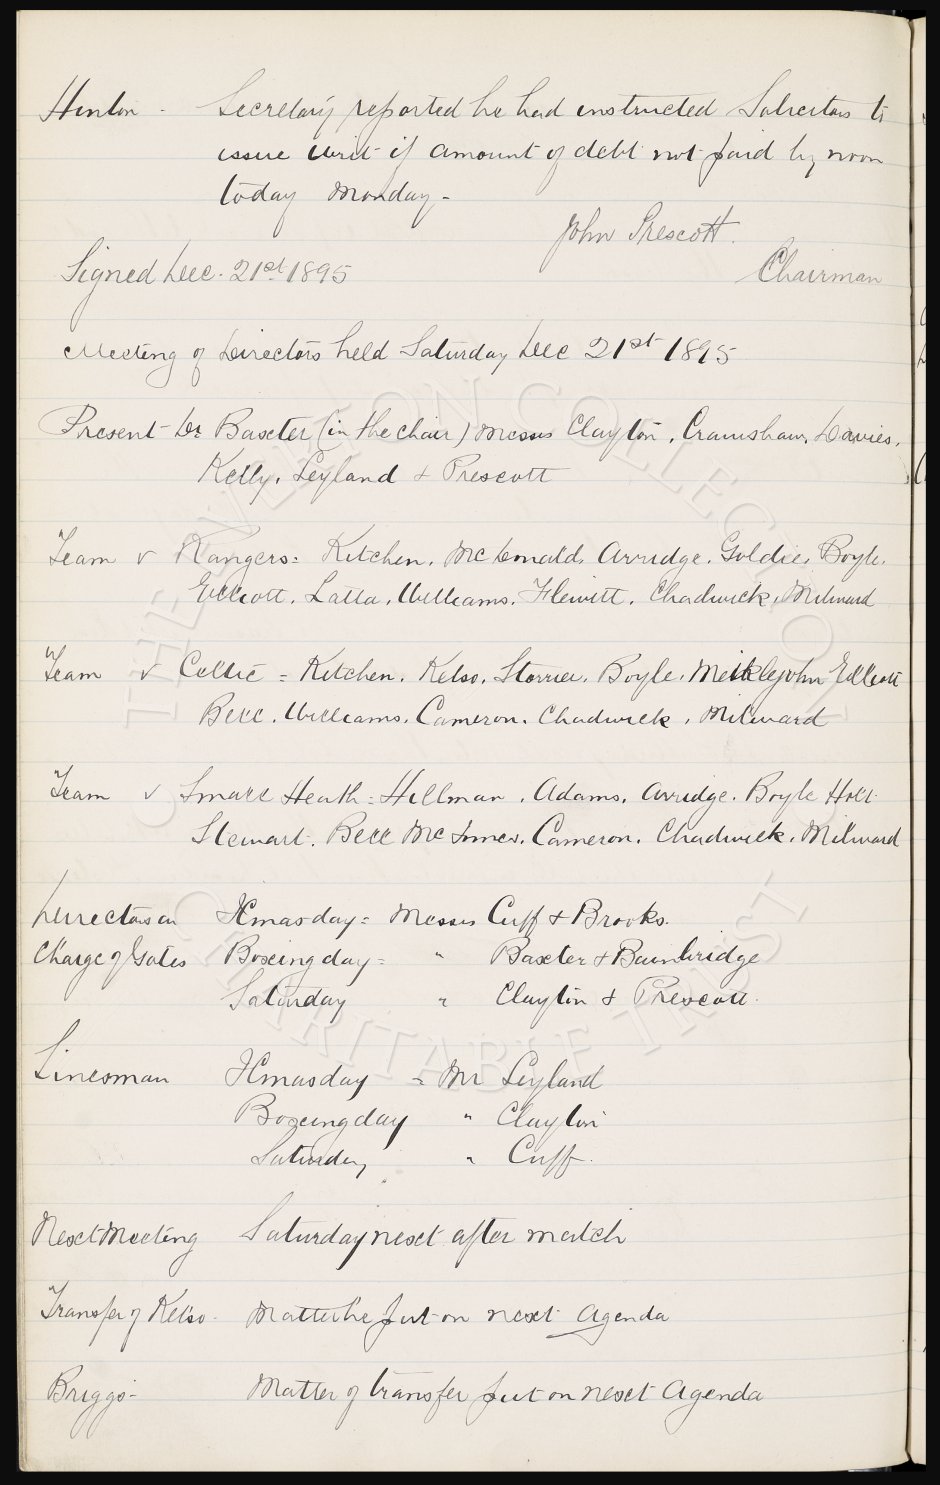 Hinton - Secretary reported he had instructed Solicitors to
issue Writ if amount of debt not paid by noon
today Monday -
John Prescott.
Signed Dec. 21st 1895 Chairman
Meeting of Directors held Saturday Dec 21st 1895
Present - Dr Baxter (in the chair) Messrs Clayton, Cramshaw, Davies,
Kelly, Leyland & Prescott
Team v Rangers = Kitchen, McDonald, Arridge, Goldie, Boyle,
Elliott, Latta, Williams, Flewitt, Chadwick, Milward
Team v Celtic = Kitchen, Kelso, Storrier, Boyle, Meiklejohn Elliott
Bell, Williams, Cameron, Chadwick, Milward
Team v Small Heath = Hillman, Adams, Arridge, Boyle Holt
Stewart, Bell McInnes, Cameron, Chadwick, Milward
Directors in Xmasday = Messrs Cuff & Brooks.
Charge of Gates Boxing day = " Baxter & Bainbridge
Saturday " Clayton & Prescott.
Linesman Xmasday = Mr Leyland
Boxing day " Clayton
Saturday " Cuff.
Next Meeting Saturday next after match
Transfer of Kelso - Matter be put on next Agenda
Briggs - Matter of transfer put on next Agenda
THE EVERTON COLLECTION
CHARITABLE TRUST